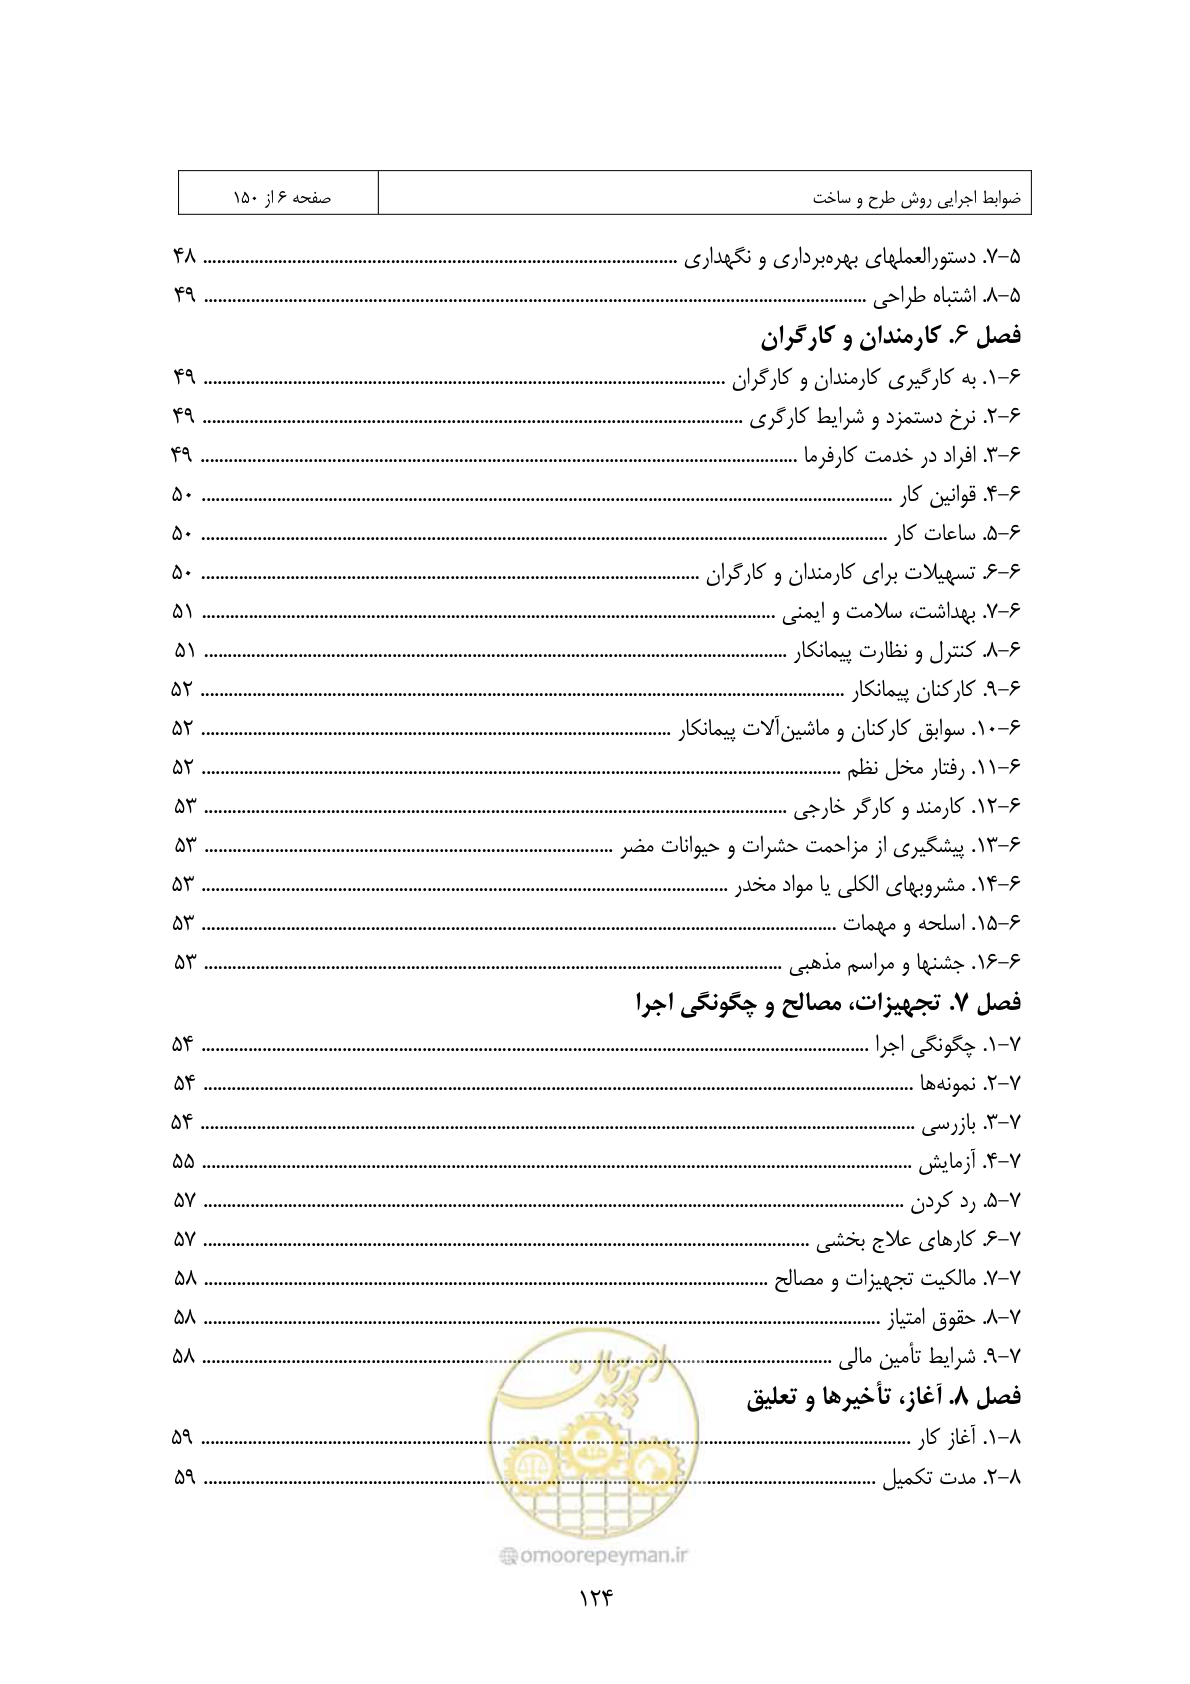 ضوابط اجرایی روش طرح و ساخت صفحه ۶ از ۱۵۰
۷-۵. دستورالعملهای بهره‌برداری و نگهداری ........ ۴۸
۸-۵. اشتباه طراحی ........ ۴۹
فصل ۶. کارمندان و کارگران
۱-۶. به کارگیری کارمندان و کارگران ........ ۴۹
۲-۶. نرخ دستمزد و شرایط کارگری ........ ۴۹
۳-۶. افراد در خدمت کارفرما ........ ۴۹
۴-۶. قوانین کار ........ ۵۰
۵-۶. ساعات کار ........ ۵۰
۶-۶. تسهیلات برای کارمندان و کارگران ........ ۵۰
۷-۶. بهداشت، سلامت و ایمنی ........ ۵۱
۸-۶. کنترل و نظارت پیمانکار ........ ۵۱
۹-۶. کارکنان پیمانکار ........ ۵۲
۱۰-۶. سوابق کارکنان و ماشین‌آلات پیمانکار ........ ۵۲
۱۱-۶. رفتار مخل نظم ........ ۵۲
۱۲-۶. کارمند و کارگر خارجی ........ ۵۳
۱۳-۶. پیشگیری از مزاحمت حشرات و حیوانات مضر ........ ۵۳
۱۴-۶. مشروبهای الکلی یا مواد مخدر ........ ۵۳
۱۵-۶. اسلحه و مهمات ........ ۵۳
۱۶-۶. جشنها و مراسم مذهبی ........ ۵۳
فصل ۷. تجهیزات، مصالح و چگونگی اجرا
۱-۷. چگونگی اجرا ........ ۵۴
۲-۷. نمونه‌ها ........ ۵۴
۳-۷. بازرسی ........ ۵۴
۴-۷. آزمایش ........ ۵۵
۵-۷. رد کردن ........ ۵۷
۶-۷. کارهای علاج بخشی ........ ۵۷
۷-۷. مالکیت تجهیزات و مصالح ........ ۵۸
۸-۷. حقوق امتیاز ........ ۵۸
۹-۷. شرایط تأمین مالی ........ ۵۸
امور پیمان
فصل ۸. آغاز، تأخیرها و تعلیق
۱-۸. آغاز کار ........ ۵۹
۲-۸. مدت تکمیل ........ ۵۹
@omoorepeyman.ir
۱۲۴